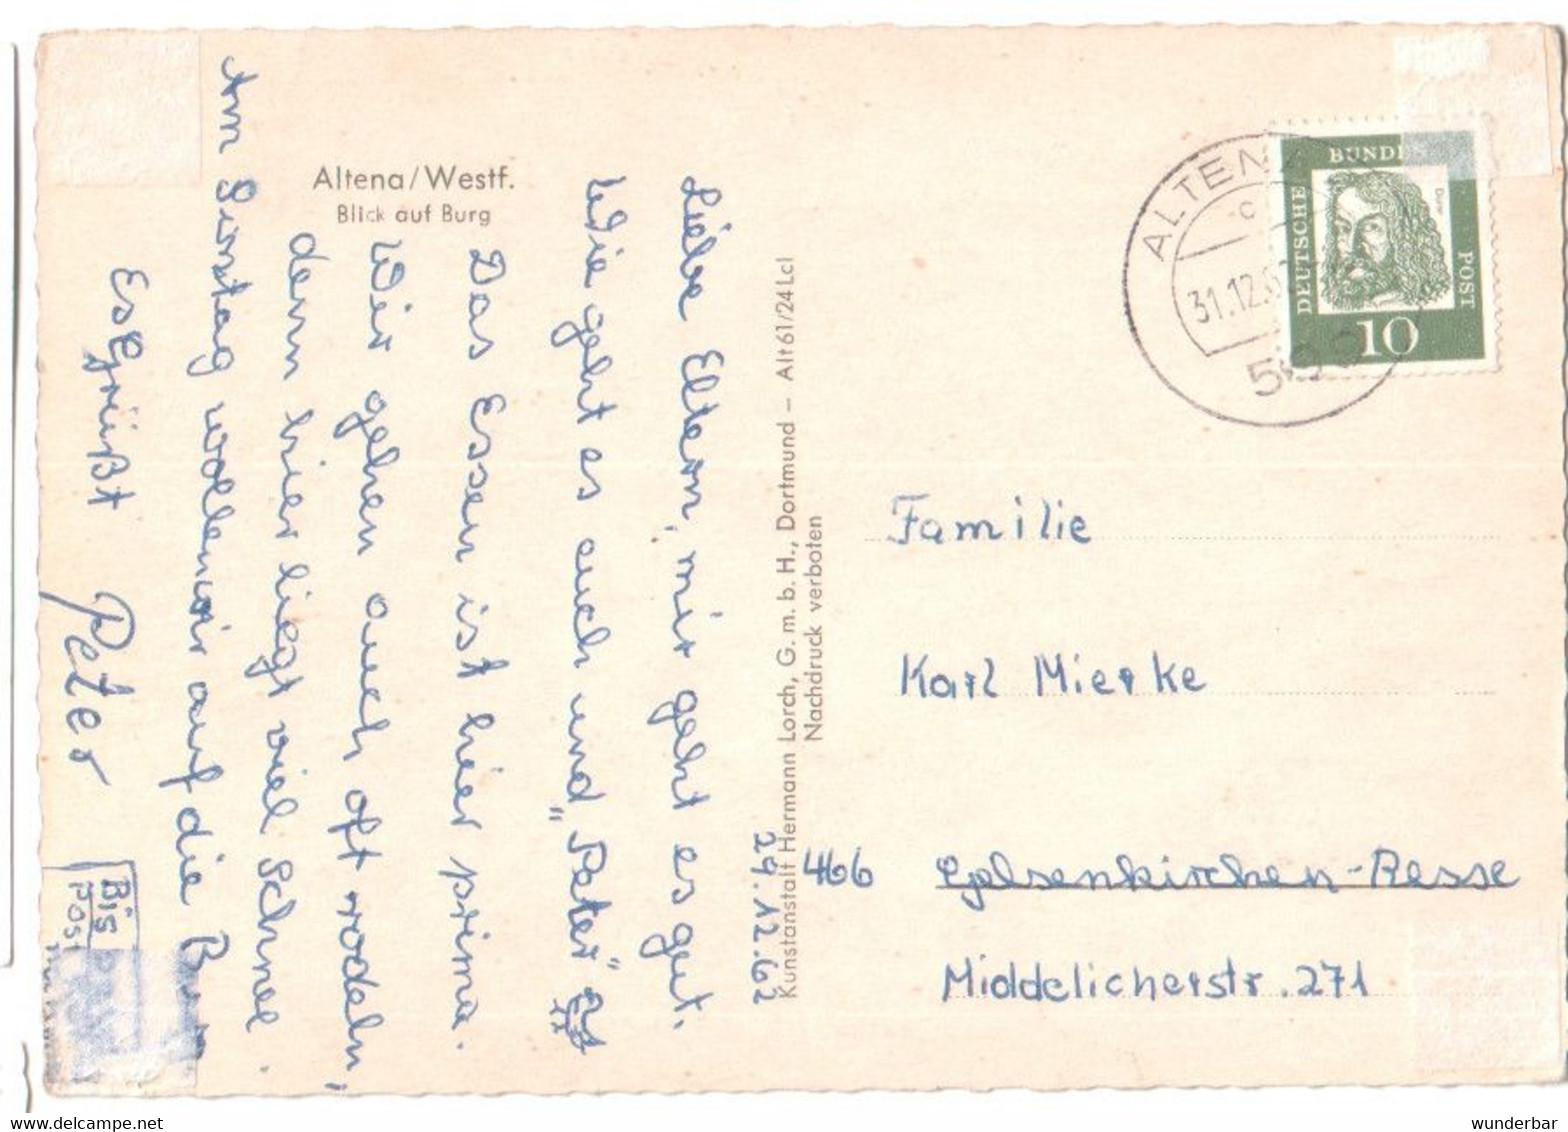 Altena/Westf.
Blick auf Burg
29.12.62
Liebe Eltern, mir geht es gut.
Wie geht es euch und "Peter"
Das Essen ist hier prima.
Wir gehen auch oft rodeln,
denn hier liegt viel Schnee.
Am Sonntag wollen wir auf die
Es grüßt Peter
Kunstanstalt Hermann Lorch, G. m. b. H., Dortmund – Alt 61/24 Lcl
Nachdruck verboten
ALTENA
31.12.6
DEUTSCHE BUNDE POST
Dürer
10
Familie
Karl Mierke
466 Gelsenkirchen-Resse
Middelicherstr. 271
Bis
Post
wunderbar